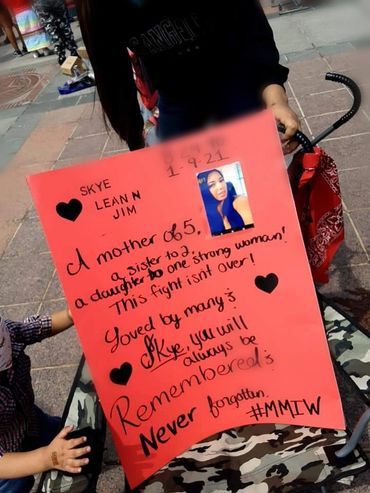 ANGEL
SKYE
LEANN
JIM
1.9.21
A mother of 5,
a sister to 2,
a daughter to one strong woman!
This fight isn't over!
Loved by many
Skye, you will
always be
Remembered
Never forgotten.
#MMIW